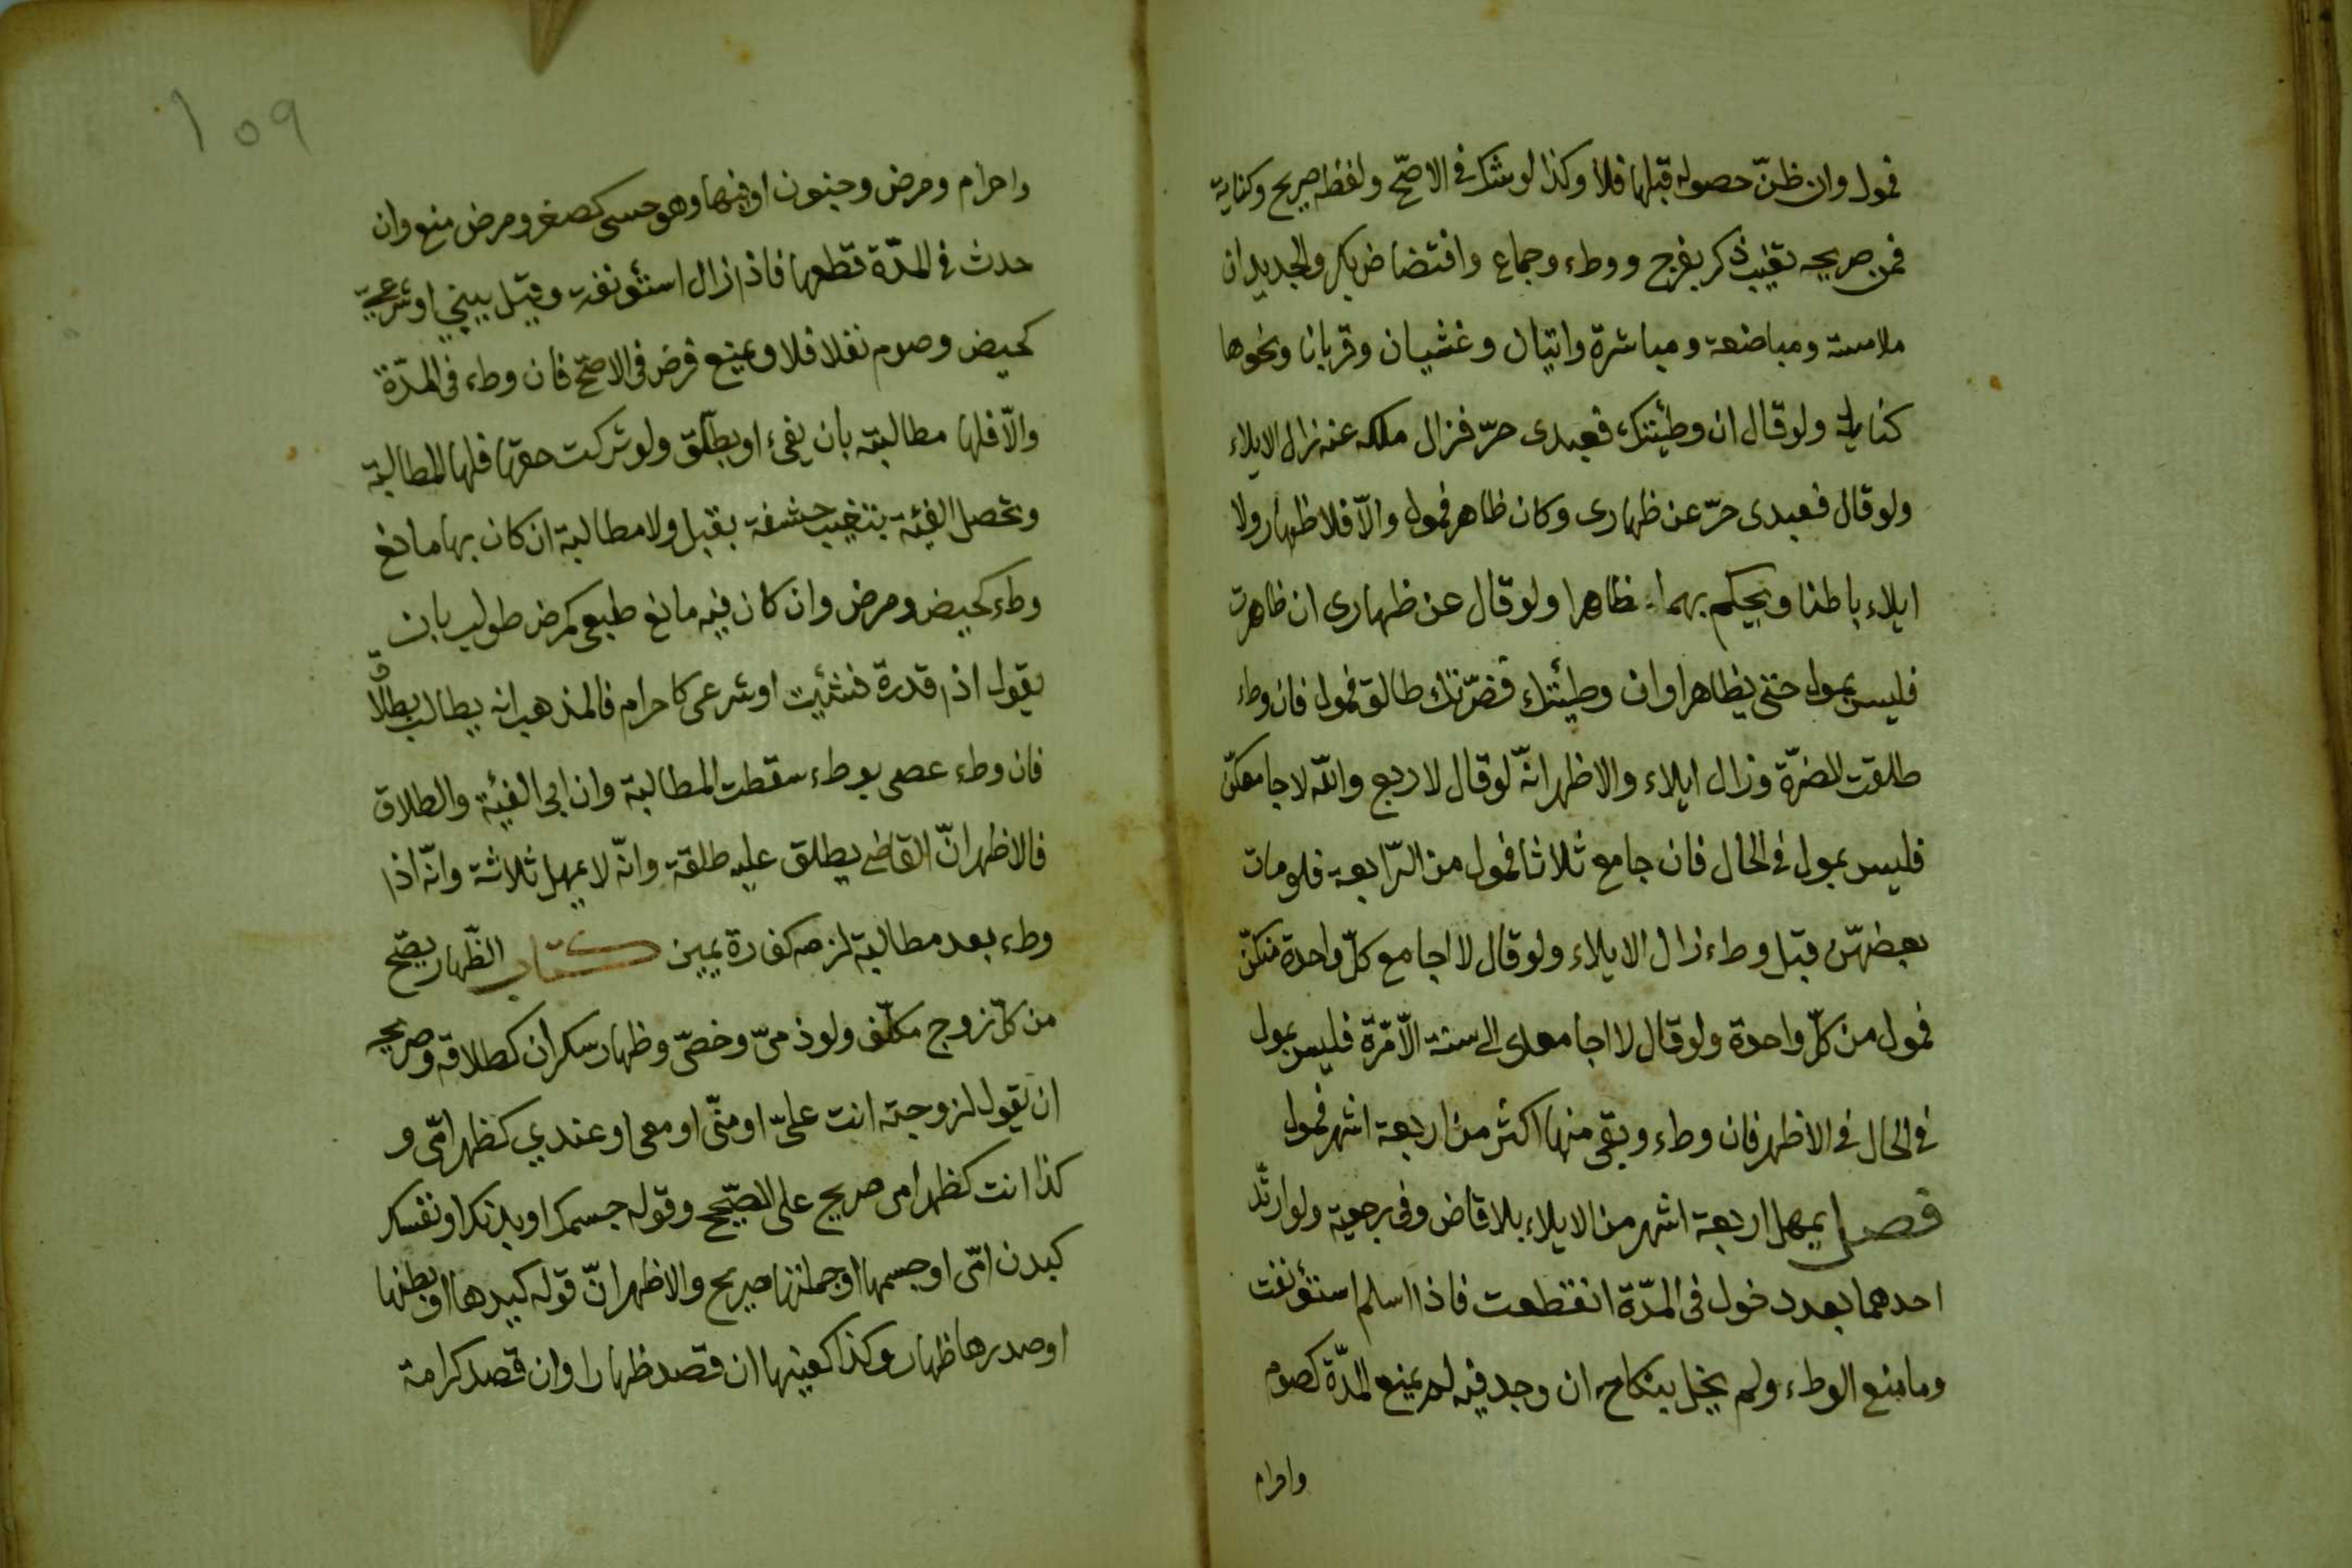 فمول وان ظنّ حصوله قبلها فلا وكذا لو شك في الاصحّ ولفظه صريح وكناية
فمن صريحه تغيب ذكر بفرج ووطء وجماع وافتضاض بكر والجديد ان
ملامسة ومباضعة ومباشرة واتيان وغشيان وقربانا ونحوها
كنايات ولو قال ان وطيئتك فعبدى حرّ فزال ملكه عنه زال الايلاء
ولو قال فعبدى حرّ عن ظهارى وكان ظاهر فمول والّا فلا ظهار ولا
ايلاء باطنا ويحكم بهما ظاهرا ولو قال عن ظهارى ان ظاهرت
فليس بمول حتى يظاهر او ان وطيئتك فضرّتك طالق فمول فان وطء
طلقت الضرّة وزال ايلاء والاظهر انّه لو قال لاربع والله لا جامعكنّ
فليس بمول في الحال فان جامع ثلاثا فمول من الرّابعة فلو مات
بعضهنّ قبل وطء زال الايلاء ولو قال لا اجامع كلّ واحدة منكنّ
فمول من كلّ واحدة ولو قال لا اجامعك الى سنة الّا مرّة فليس بمول
في الحال في الاظهر فان وطء وبقى منها اكثر من اربعة اشهر فمول
فصل يمهل اربعة اشهر من الايلاء بلا قاض وفى رجعية ولو ارتدّ
احدهما بعد دخول فى المدّة انقطعت فاذا اسلم استؤنفت
وما منع الوطء ولم يخل بنكاح ان وجد فيه لم يمنع المدّة كصوم
واحرام
١٥٩
واحرام ومرض وجنون او فيها وهو حسى كصغر ومرض منع وان
حدث في المدّة قطعها فاذا زال استؤنفت وقيل يبنى او شرعىّ
كحيض وصوم نفلا فلا ويمنع فرض فى الاصحّ فان وطء فى المدّة
والّا فلها مطالبته بان يفىء او يطلّق ولو تركت حقها فلها المطالبة
وتحصل الفيئة بتغييب حشفة بقبل ولا مطالبة ان كان بها مانع
وطء كحيض ومرض وان كان فيه مانع طبعى كمرض طولب بان
يقول اذا قدرة فئئت او شرعى كاحرام فالمذهب انه يطالب بطلاق
فان وطء عصى بوطء سقطت المطالبة وان ابى الفيئة والطلاق
فالاظهر انّ القاضى يطلق عليه طلقة وانّه لا يمهل ثلاثة وانّه اذا
وطء بعد مطالبة لزمه كفارة يمين كتاب الظّهار يصّح
من كلّ زوج مكلّف ولو ذمىّ وخصّى وظهار سكران كطلاقه وصريحه
ان يقول لزوجته انت علىّ او منّى او معى او عندي كظهر امّى و
كذا انت كظهر امى صريح على الصّحيح وقوله جسمك او بدنك او نفسك
كبدن امّى او جسمها او جملتها صريح والاظهر انّ قوله كيدها او بطنها
او صدرها ظهار وكذا كعينها ان قصد ظهارا وان قصد كرامة